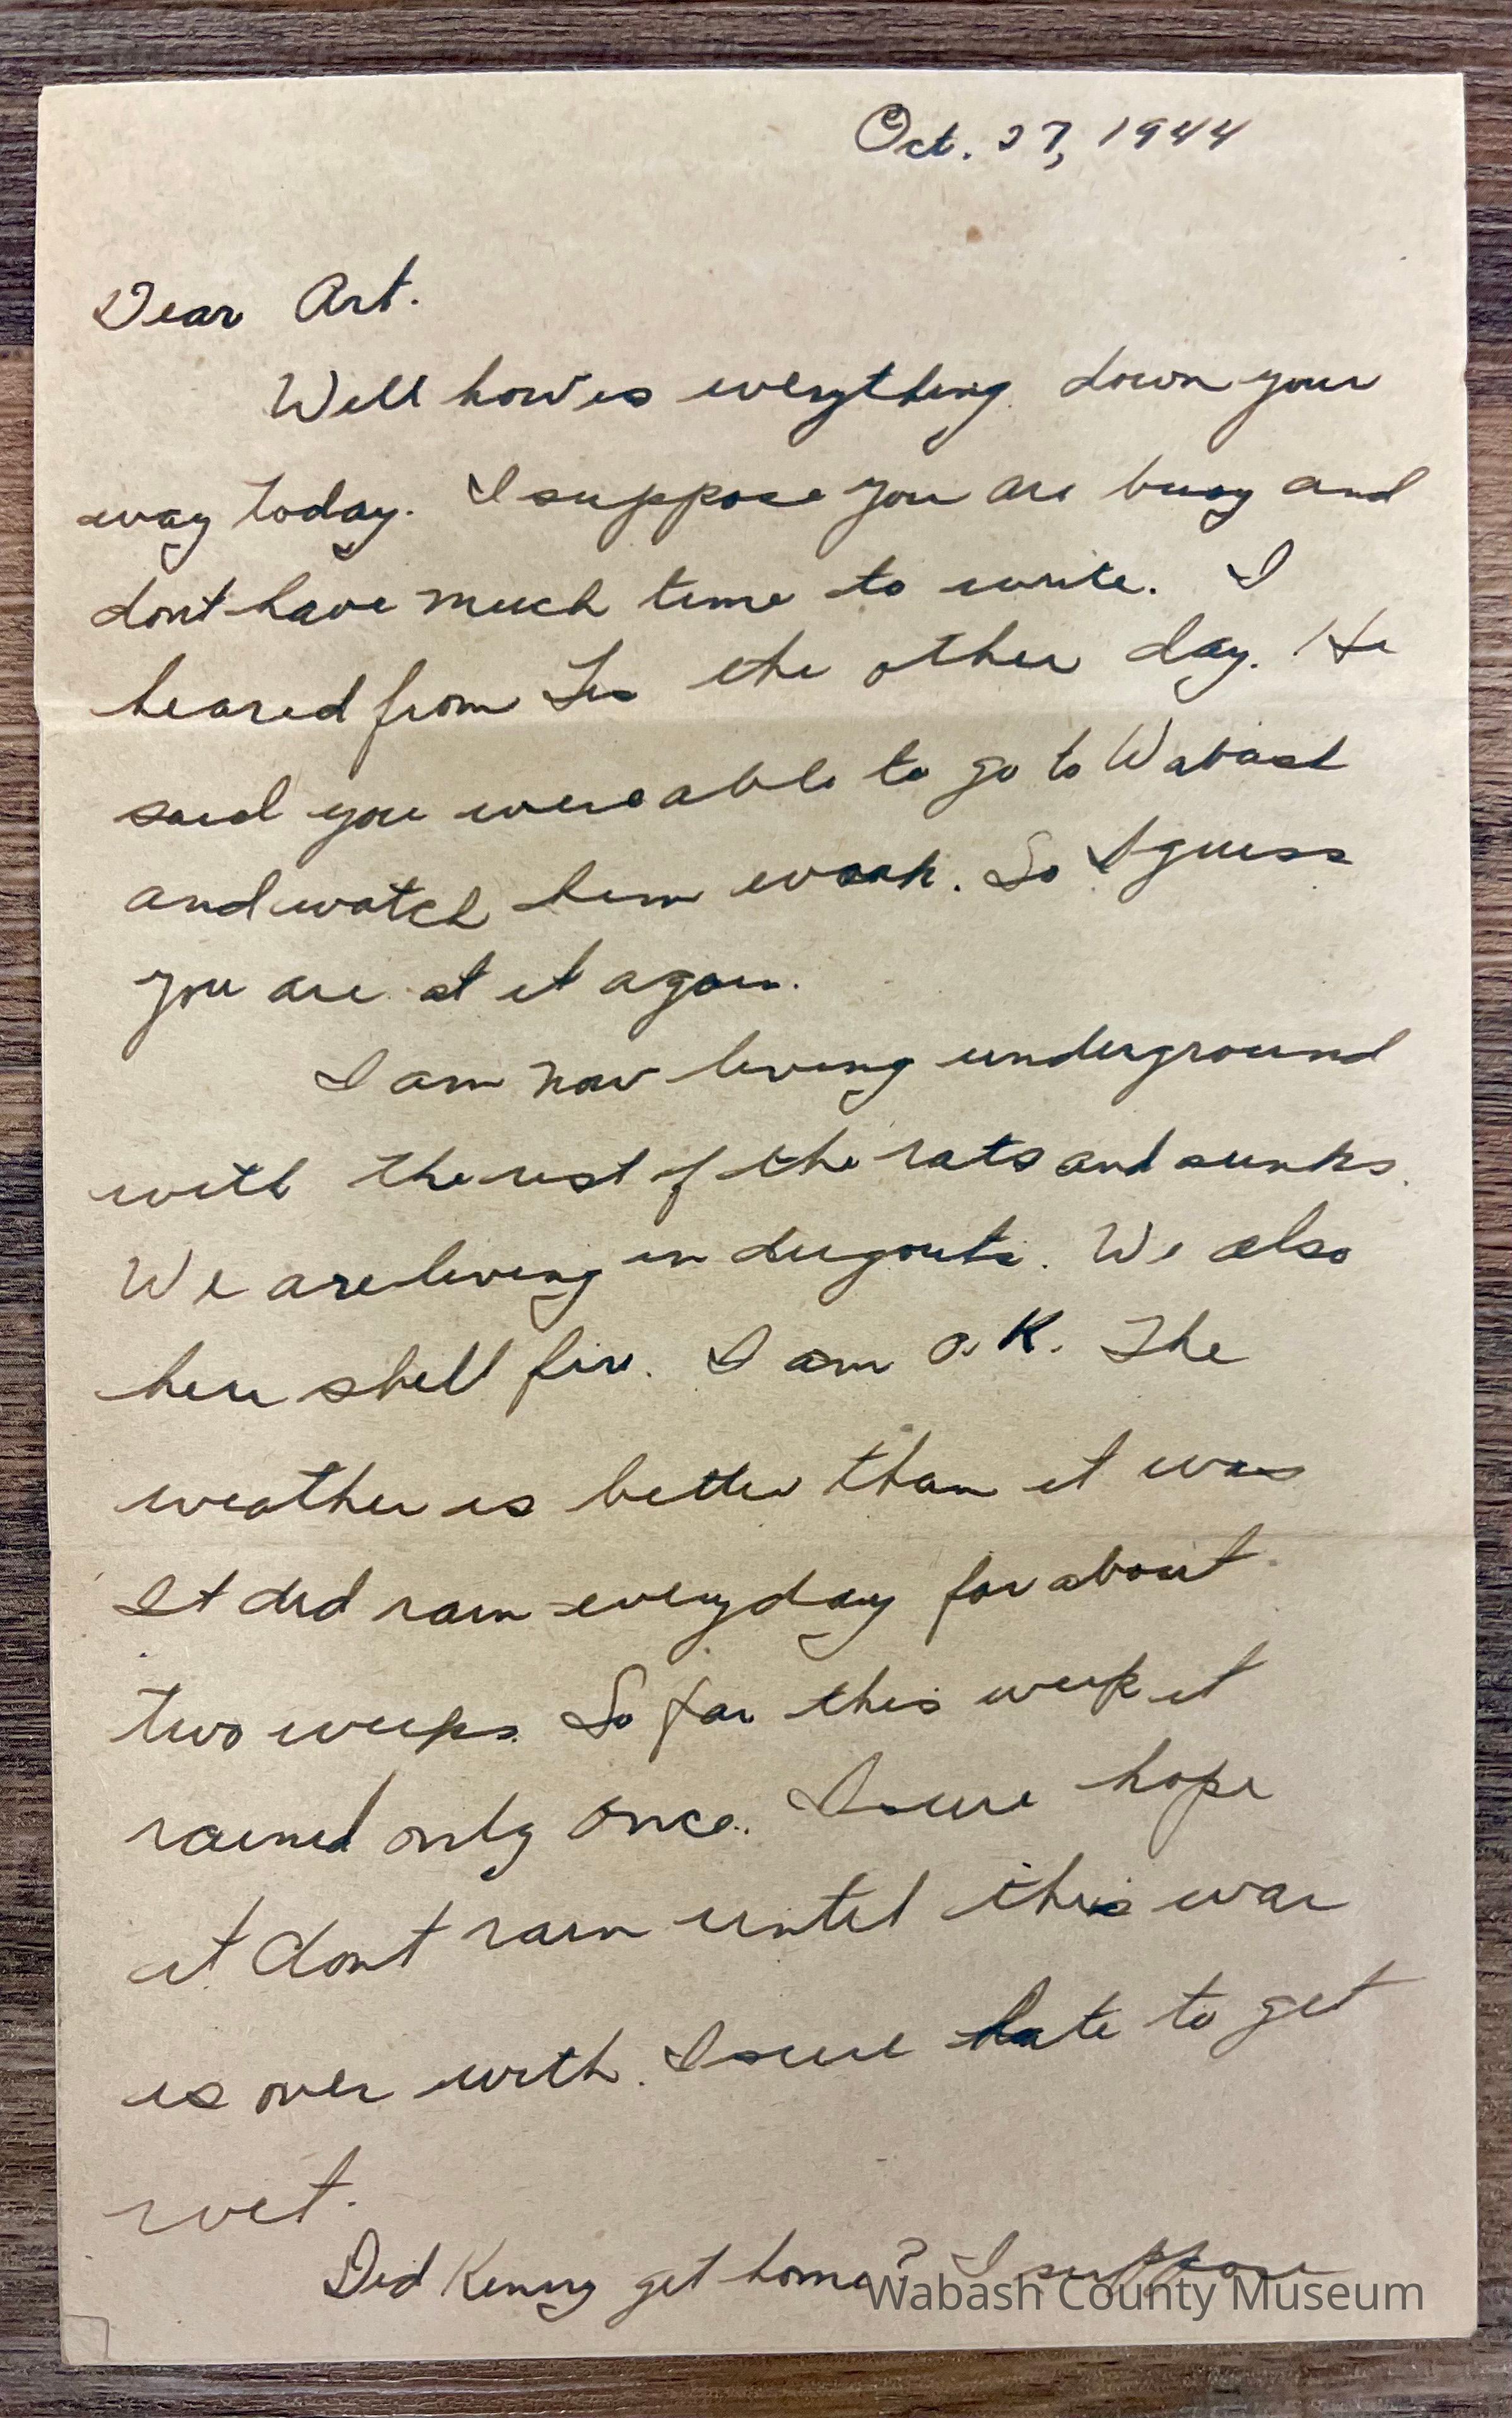 Oct. 27, 1944
Dear Art.
Well how is everything down your
way today. I suppose you are busy and
dont have much time to write. I
heared from Les the other day. He
said you were able to go to Wabash
and watch him work. So I guess
you are at it again.
I am now living underground
with the rest of the rats and
We are living in dugouts. We also
here shell fire. I am O.K. The
weather is better than it was
It did rain everyday for about
two weeks. So far this week it
rained only once. I sure hope
it dont rain until this war
is over with. I sure hate to get
wet.
Did Kenny get home? I suppose
Wabash County Museum